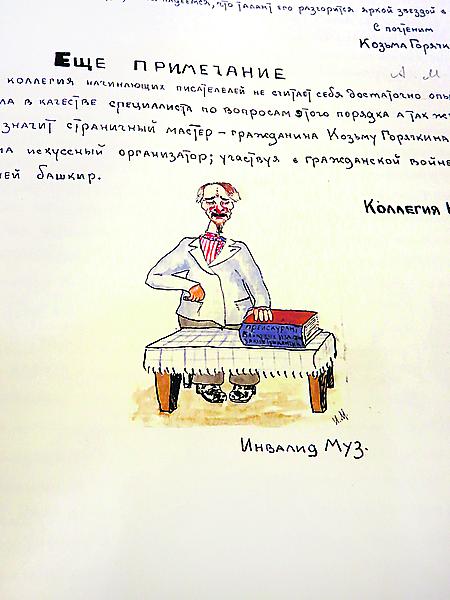 что талант его разгорится яркой звездой в
С почтением
Козьма Горячк
Еще примечание
А. М
коллегия начинающих писателелей не считает себя достаточно опы
ла в качестве специалиста по вопросам этого порядка а так ж
значит страничный мастер – гражданина Козьму Горячкина
ма искуссный организатор; участвуя в гражданской войне
ней башкир.
Коллегия
прейскурант
И.М.
Инвалид Муз.